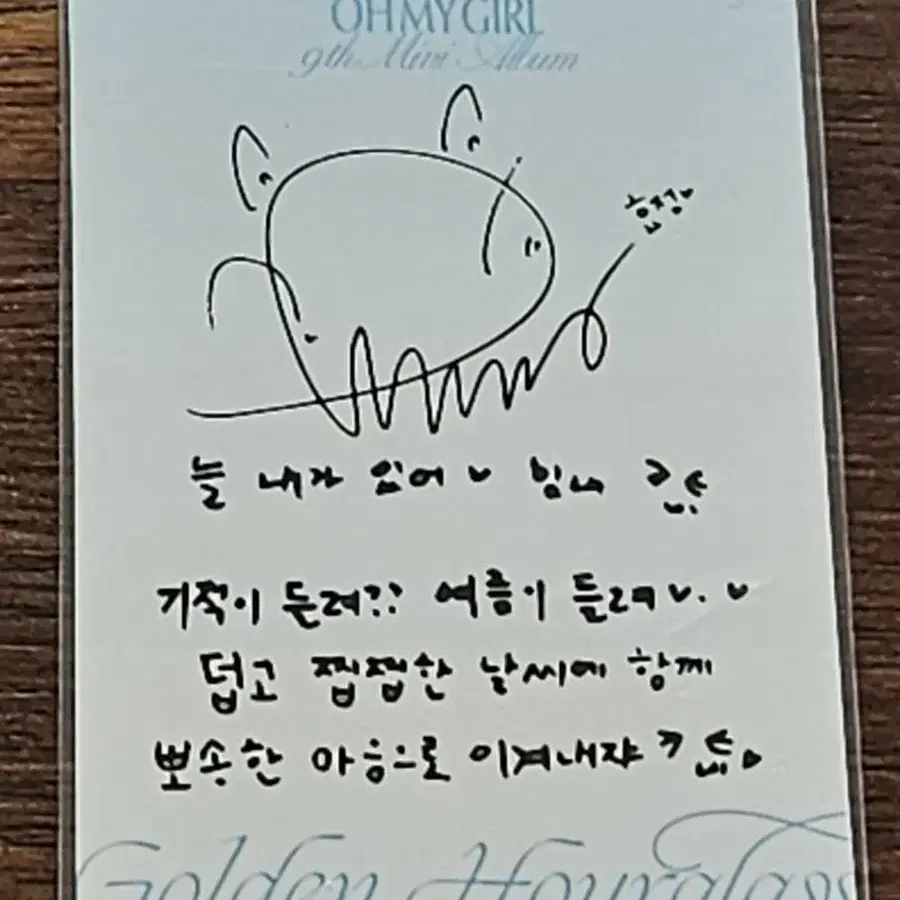 OH MY GIRL
9th Mini Album
현정♥
늘 내가 있어♥ 힘내
기적이 들려?? 여름이 들려♥.♥
덥고 찝찝한 날씨에 함께
뽀송한 마음으로 이겨내쟈
Golden Hourglass